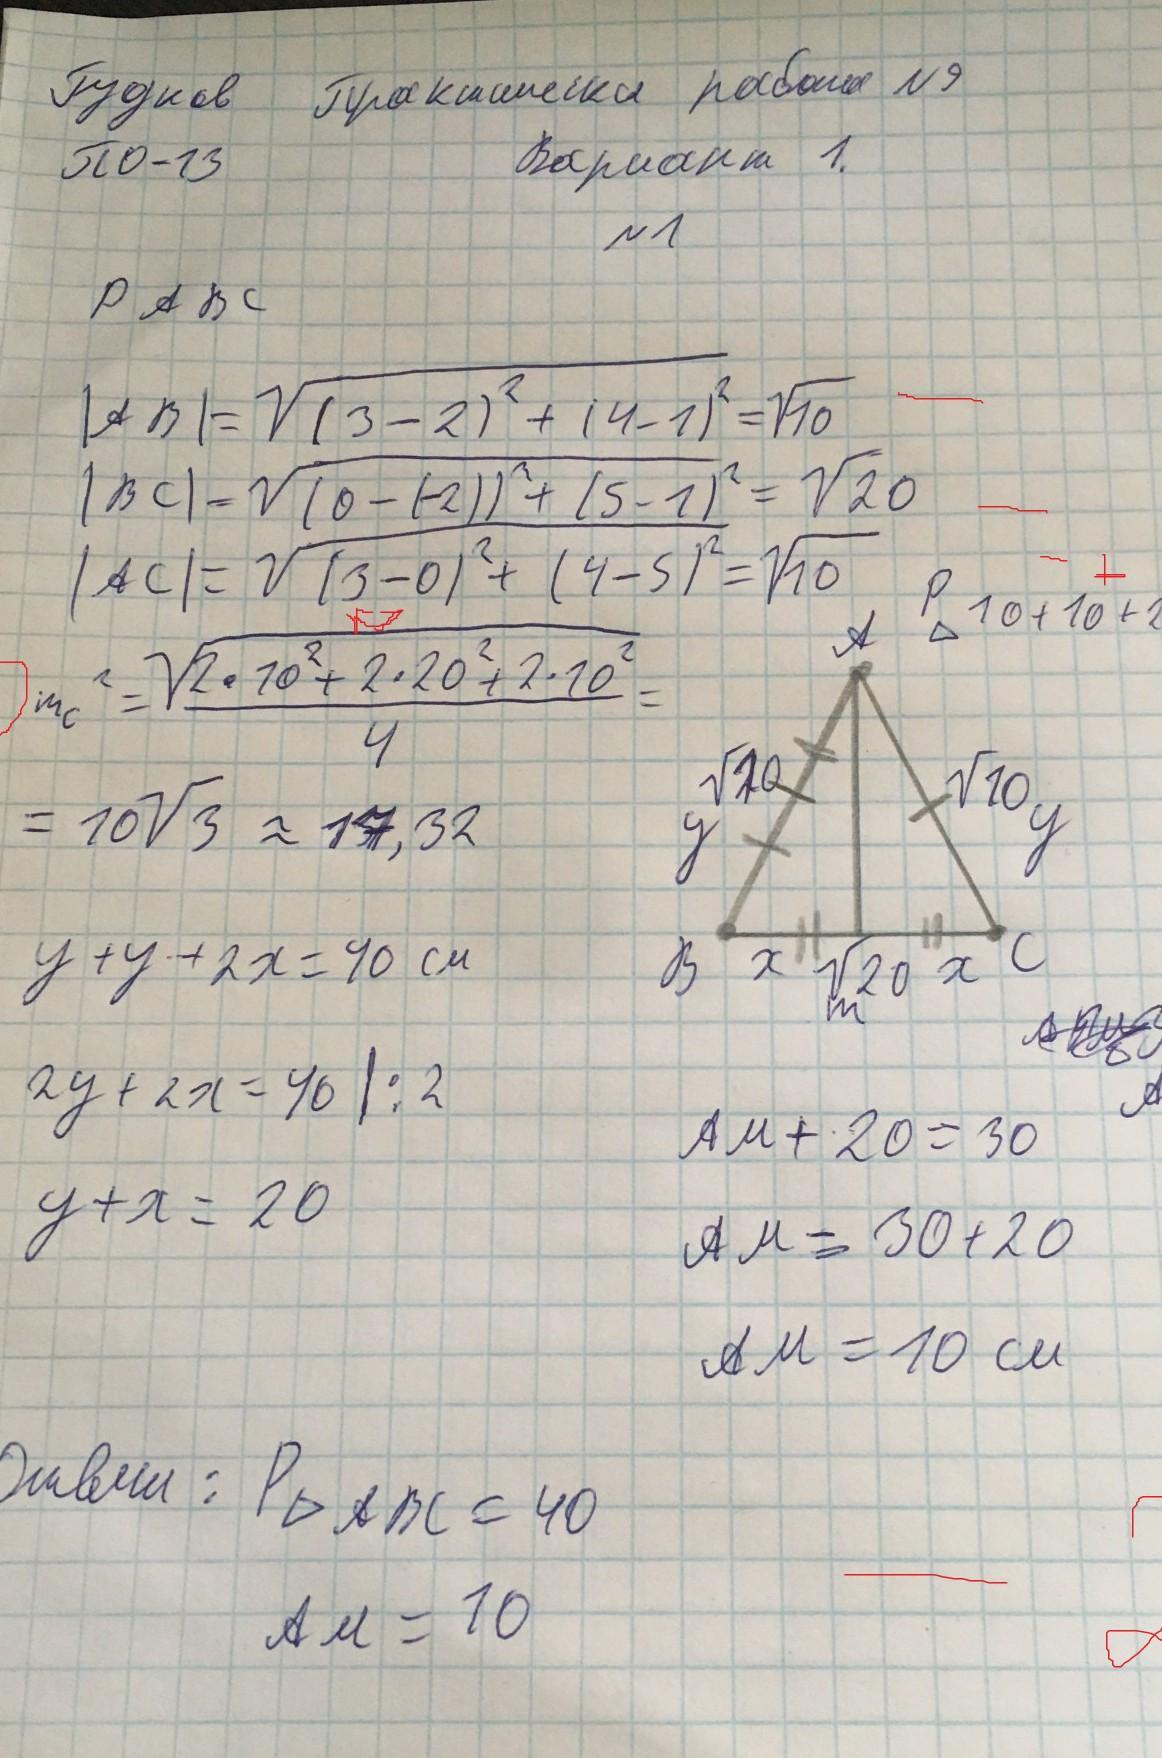 Гудков Практическа работа №9
ПО-13 Вариант 1.
№1
P ABC
|AB|=√(3-2)²+(4-1)²=√10
|BC|=√(0-(-2))²+(5-1)²=√20
|AC|=√(3-0)²+(4-5)²=√10
P△ 10+10+2
m_c²=√2·10²+2·20²+2·10²/4=
=10√3≈17,32
A
√10
y
√10 y
B x √20 x C
m
y+y+2x=40 см
2y+2x=40|:2
y+x=20
AM+20=30
AM=30+20
AM=10 см
Ответ: P△ABC=40
AM=10